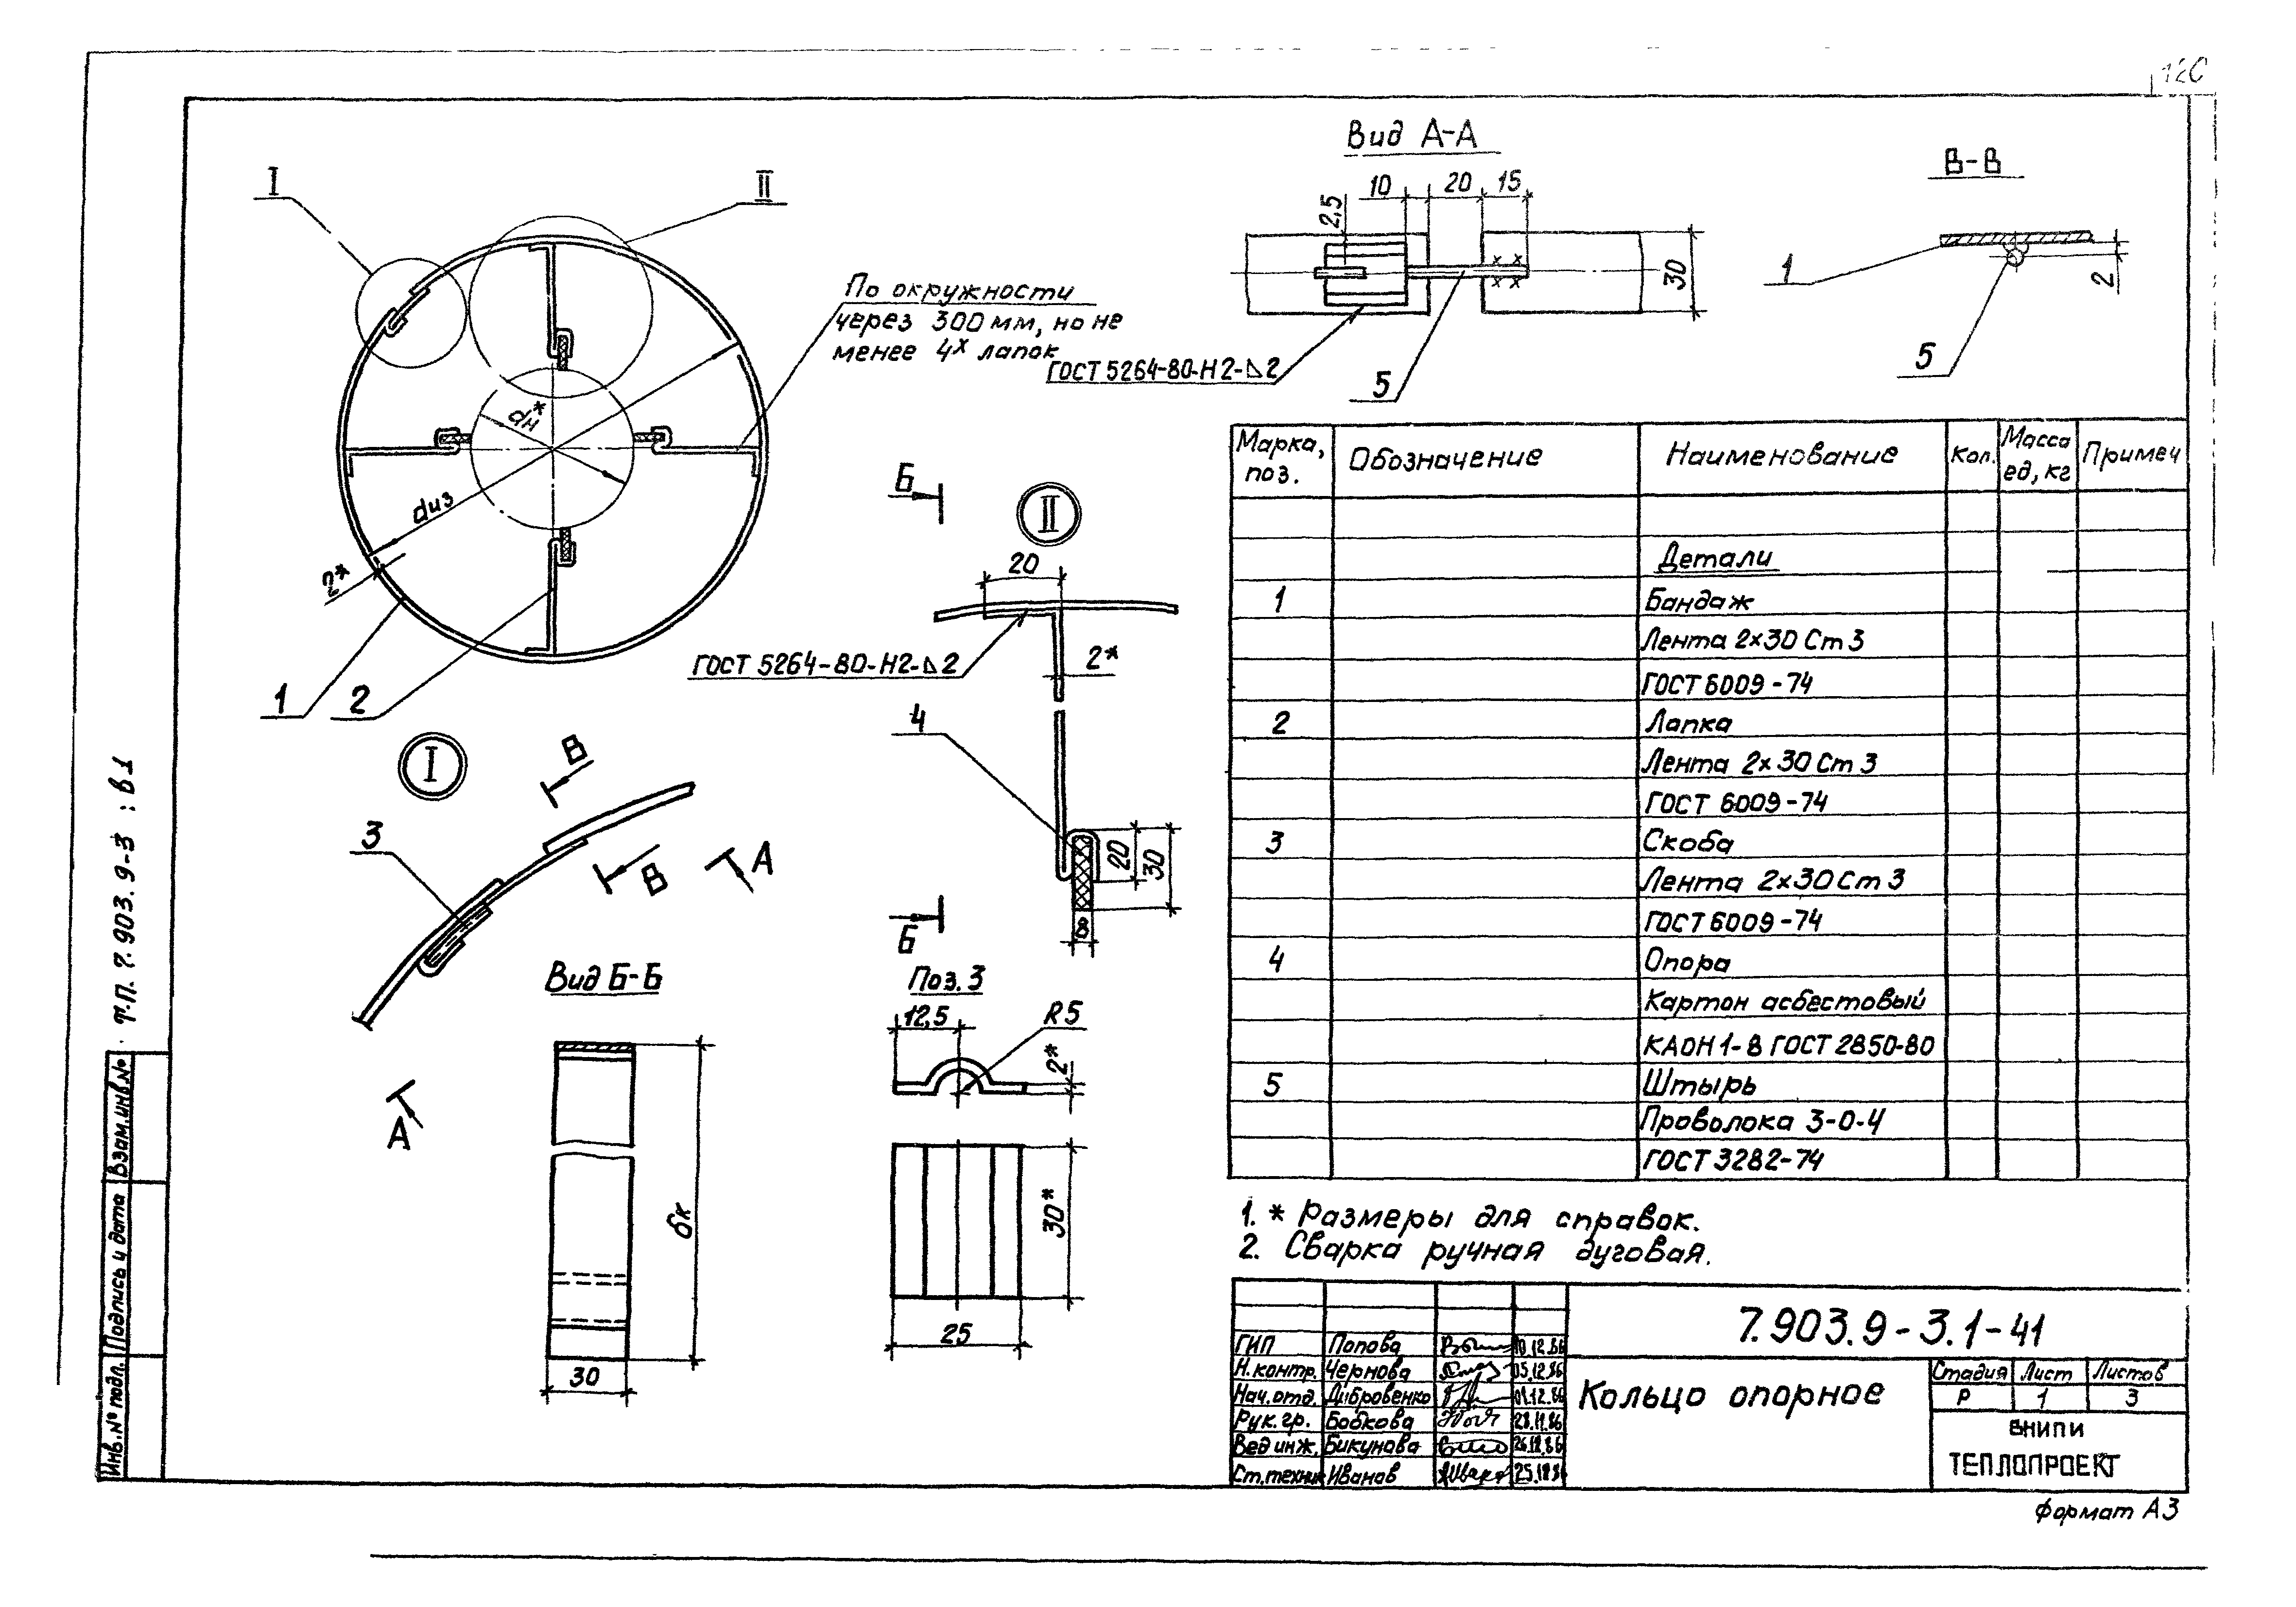 I
II
По окружности
через 300 мм, но не
менее 4х лапок
dн*
dиз
2*
1
2
I
3
В
В
А
А
Вид Б-Б
бк
30
Б
II
20
ГОСТ 5264-80-Н2-⊿2
2*
4
20
30
8
Б
Поз. 3
12,5
R5
2*
30*
25
Вид А-А
10
20
15
2,5
30
ГОСТ 5264-80-Н2-⊿2
5
В-В
1
2
5
Марка, поз.
Обозначение
Наименование
Кол.
Масса ед, кг
Примеч
Детали
1 Бандаж
Лента 2х30 Ст 3
ГОСТ 6009-74
2 Лапка
Лента 2х30 Ст 3
ГОСТ 6009-74
3 Скоба
Лента 2х30 Ст 3
ГОСТ 6009-74
4 Опора
Картон асбестовый
КАОН 1-8 ГОСТ 2850-80
5 Штырь
Проволока 3-0-4
ГОСТ 3282-74
1. * Размеры для справок.
2. Сварка ручная дуговая.
7.903.9-3.1-41
ГИП Попова 10.12.86
Н.контр. Чернова 05.12.86
Нач.отд. Дибровенко 01.12.86
Рук.гр. Бобкова 28.11.86
Вед инж. Бикунова
Ст.техник Иванов
Кольцо опорное
Стадия Лист Листов
Р 1 3
ВНИПИ
ТЕПЛОПРОЕКТ
Формат А3
т.п. 7.903.9-3 : в1
Взам.инв.№
Подпись и дата
Инв.№ подл.